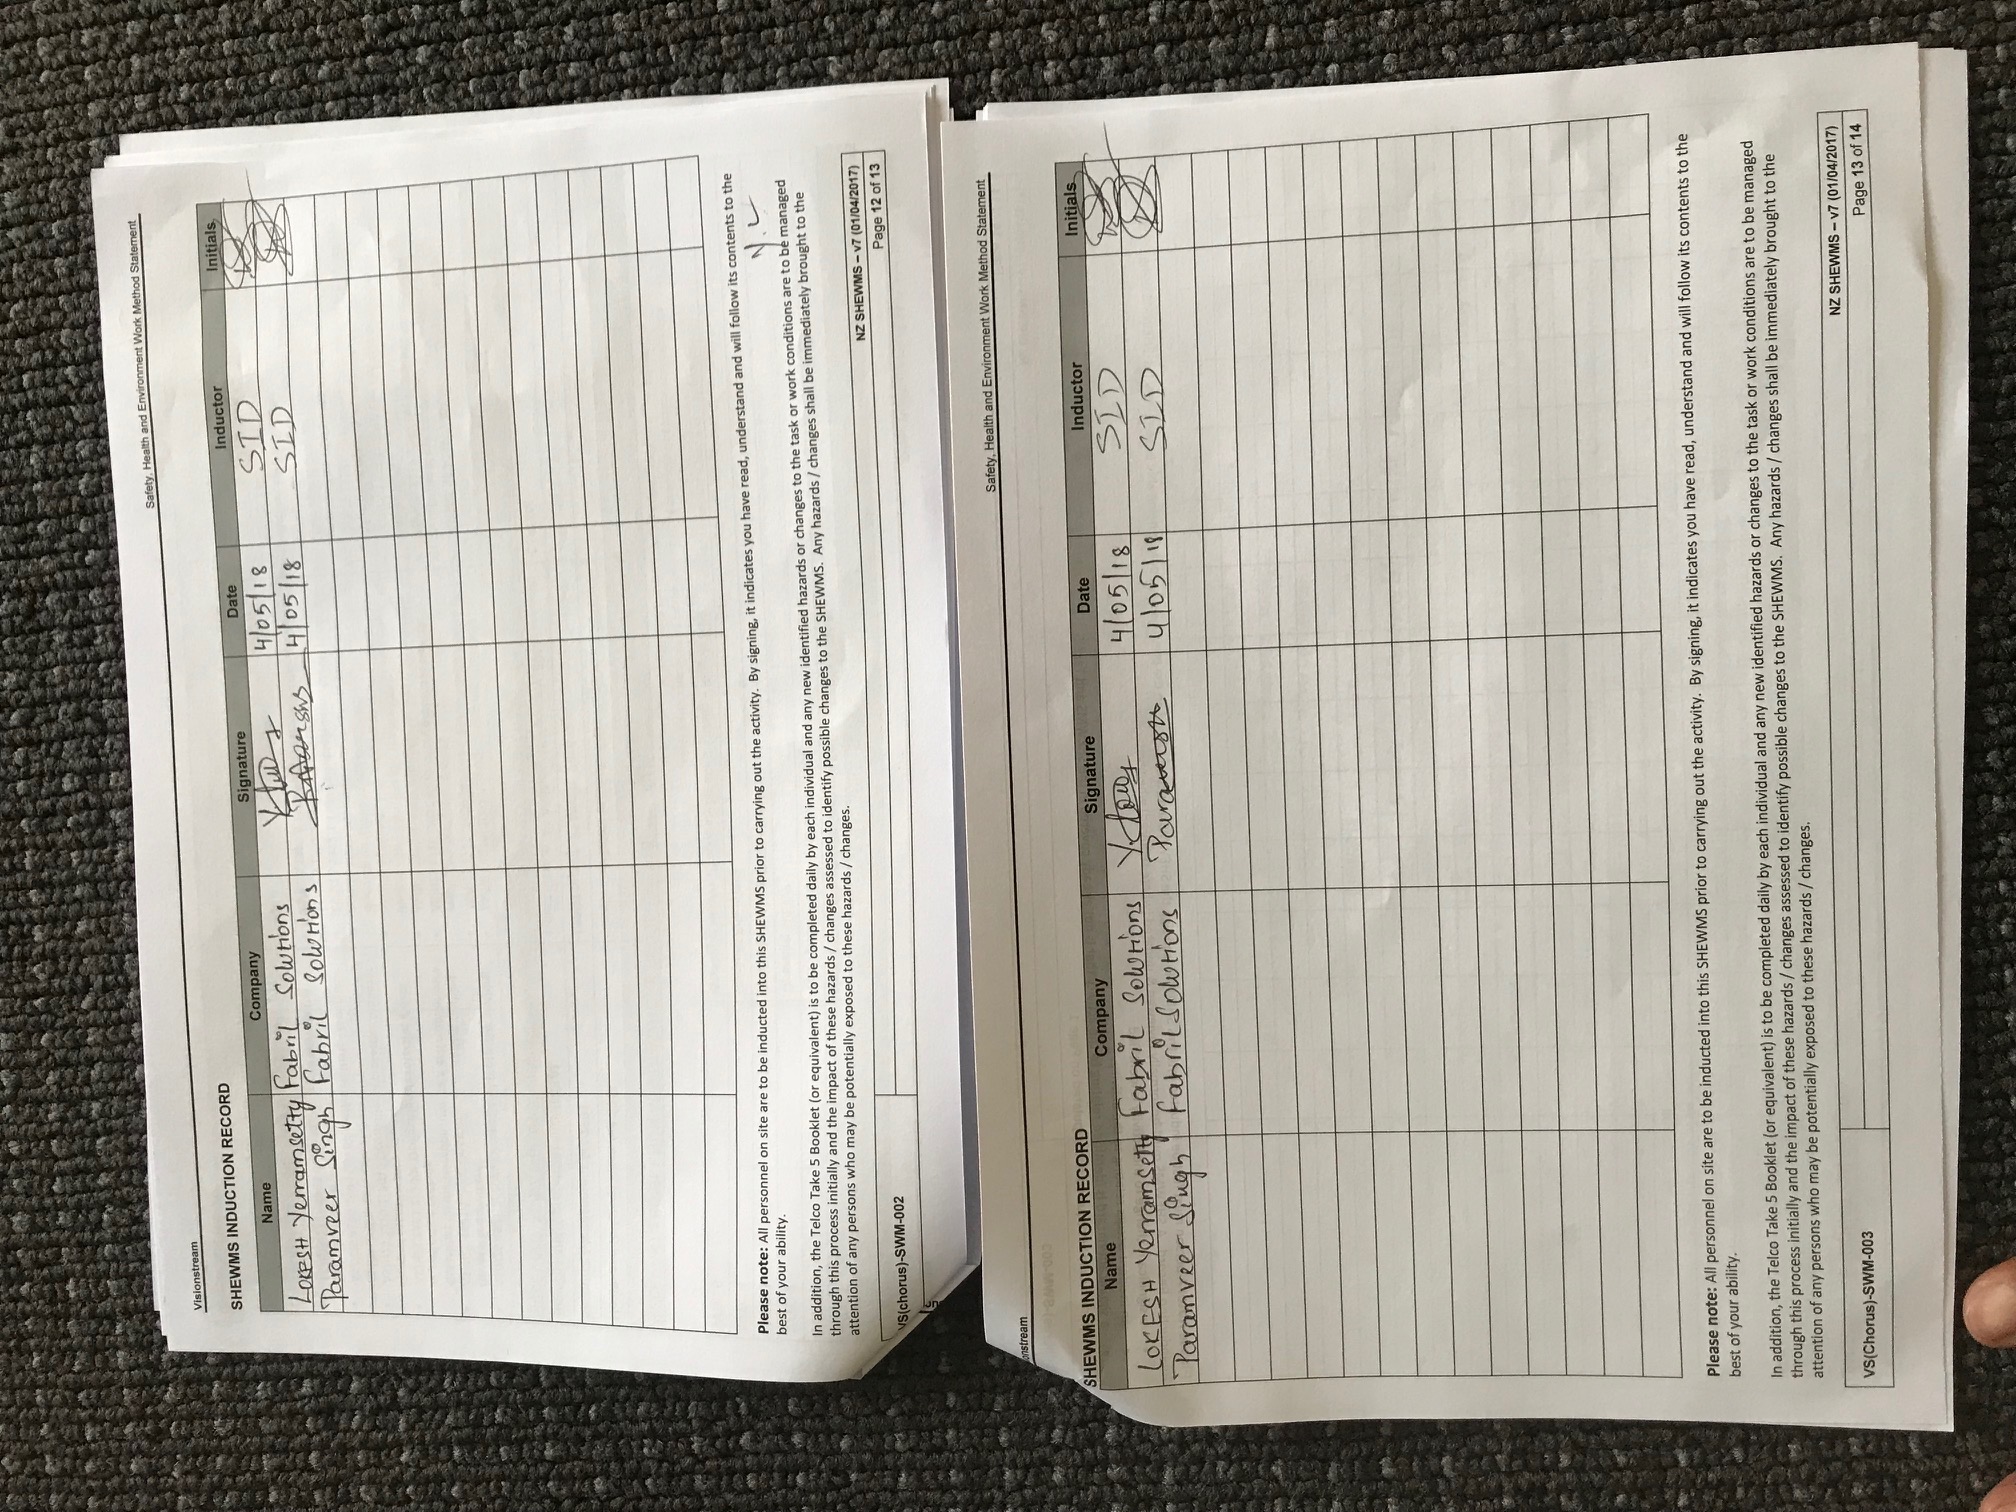 Visionstream
Safety, Health and Environment Work Method Statement
SHEWMS INDUCTION RECORD
Name Company Signature Date Inductor Initials
LOKESH Yerramsetty Fabril Solutions 4/05/18 SID
Paramveer Singh Fabril Solutions 4/05/18 SID
Please note: All personnel on site are to be inducted into this SHEWMS prior to carrying out the activity. By signing, it indicates you have read, understand and will follow its contents to the
best of your ability.
Y.L
In addition, the Telco Take 5 Booklet (or equivalent) is to be completed daily by each individual and any new identified hazards or changes to the task or work conditions are to be managed
through this process initially and the impact of these hazards / changes assessed to identify possible changes to the SHEWMS. Any hazards / changes shall be immediately brought to the
attention of any persons who may be potentially exposed to these hazards / changes.
NZ SHEWMS – v7 (01/04/2017)
VS(chorus)-SWM-002
Page 12 of 13
onstream
Safety, Health and Environment Work Method Statement
SHEWMS INDUCTION RECORD
Name Company Signature Date Inductor Initials
LOKESH Yerramsetty Fabril Solutions 4/05/18 SID
Paramveer Singh Fabril Solutions 4/05/18 SID
Please note: All personnel on site are to be inducted into this SHEWMS prior to carrying out the activity. By signing, it indicates you have read, understand and will follow its contents to the
best of your ability.
In addition, the Telco Take 5 Booklet (or equivalent) is to be completed daily by each individual and any new identified hazards or changes to the task or work conditions are to be managed
through this process initially and the impact of these hazards / changes assessed to identify possible changes to the SHEWMS. Any hazards / changes shall be immediately brought to the
attention of any persons who may be potentially exposed to these hazards / changes.
NZ SHEWMS – v7 (01/04/2017)
VS(Chorus)-SWM-003
Page 13 of 14